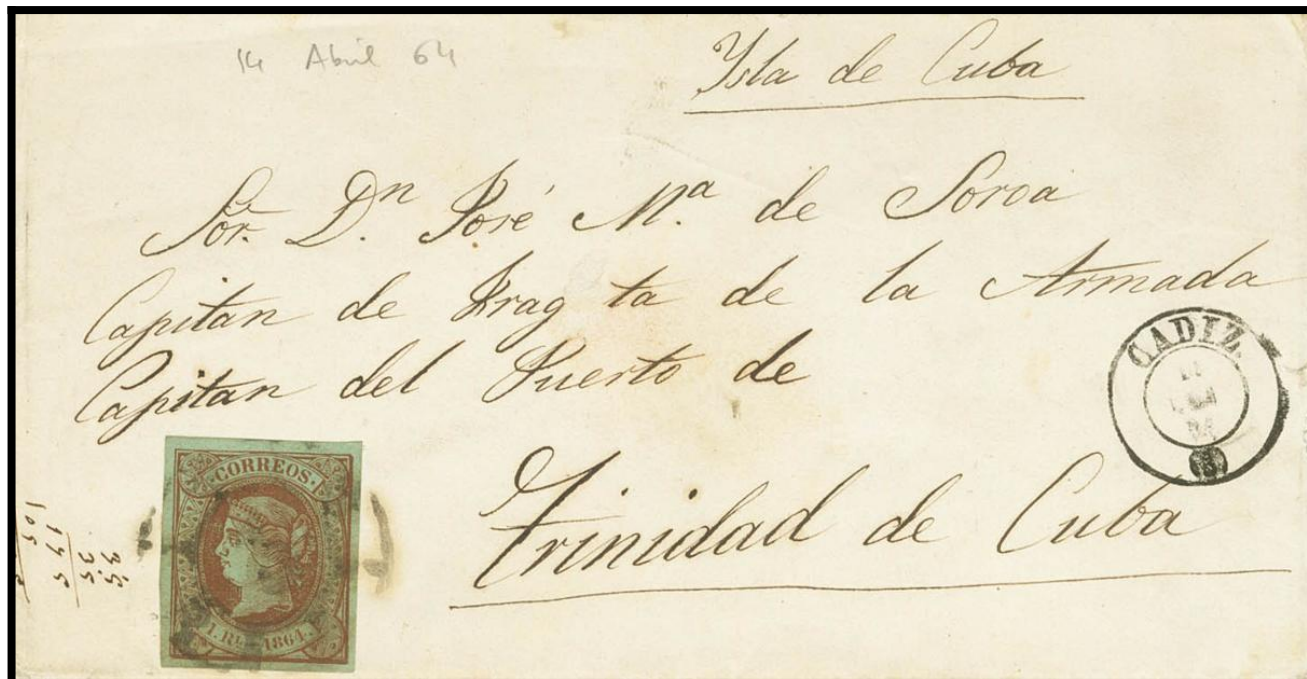 14 Abril 64
Ysla de Cuba
Sor. Dn. José Ma. de Soroa
Capitan de Frag ta de la Armada
Capitan del Puerto de
Trinidad de Cuba
CADIZ.
CORREOS.
1. RL. 1864.
35
35